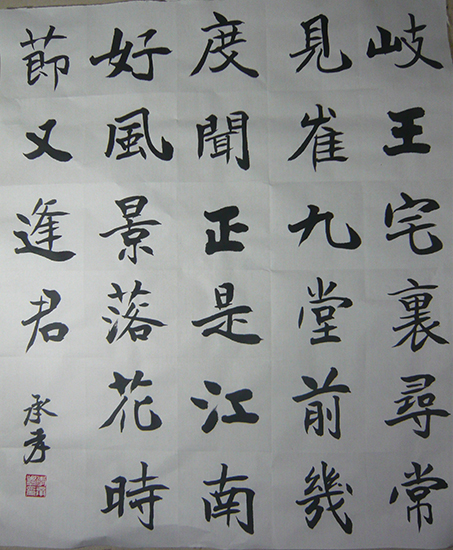 岐王宅裏尋常
見崔九堂前幾
度聞正是江南
好風景落花時
節又逢君